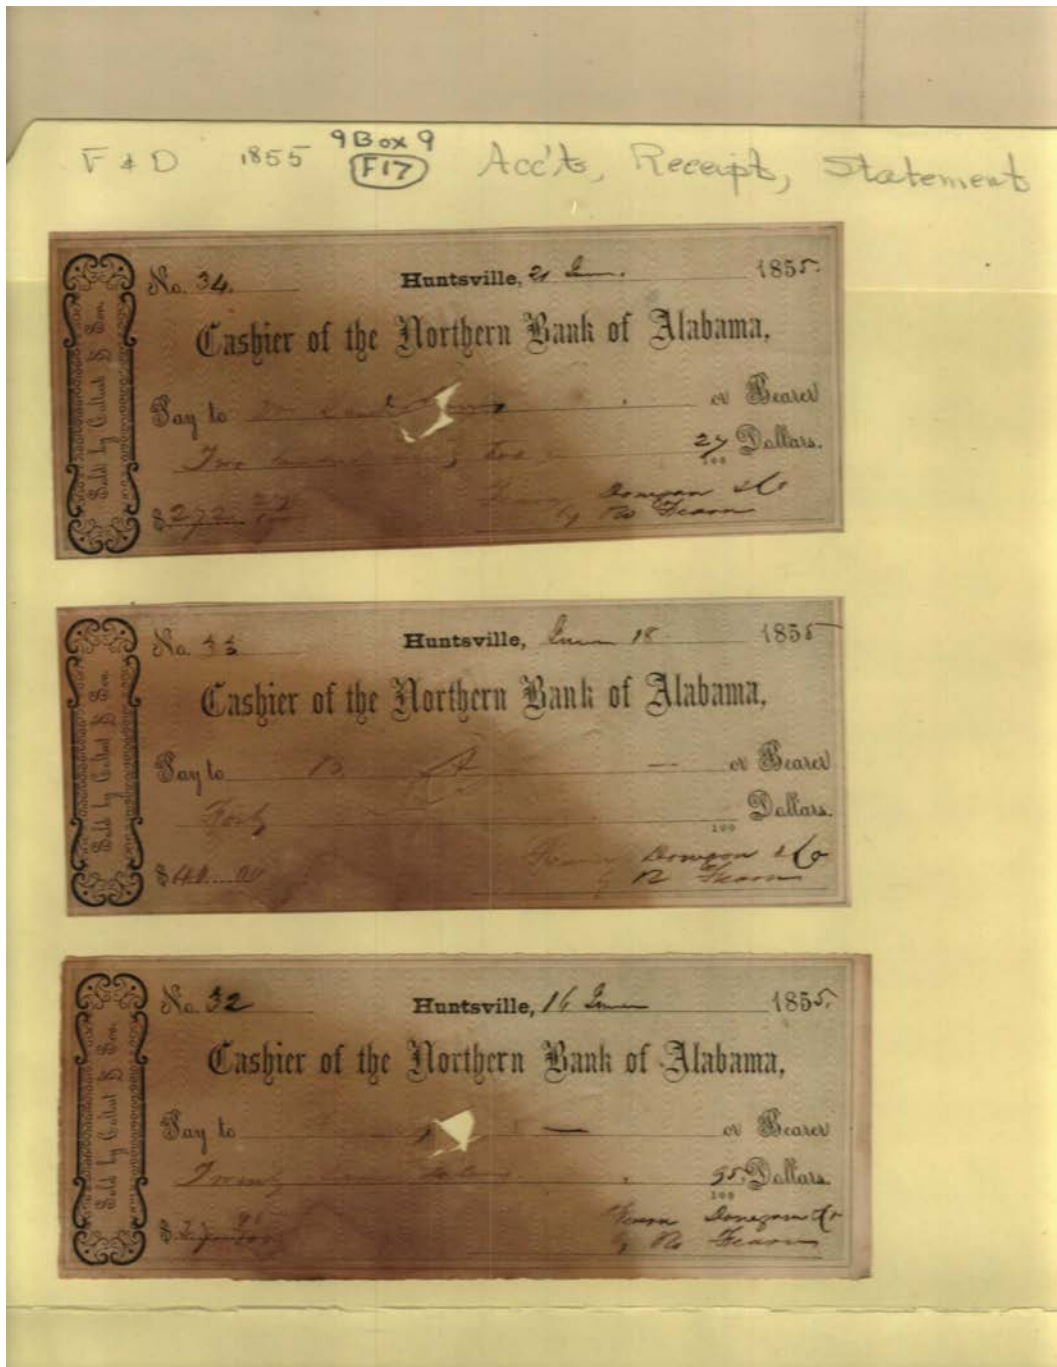 F & D 1855 9 Box 9 Acc'ts, Receipt, Statement
F17
No. 34. Huntsville, 21 June. 1855.
Cashier of the Northern Bank of Alabama,
Pay to or Bearer
Two hundred 27 Dollars.
100
$272 27/100 Donegan & Co
By R Fearn
Sold by Coltart & Son
No. 33 Huntsville, June 18 1855
Cashier of the Northern Bank of Alabama,
Pay to or Bearer
Forty Dollars.
100
$40.00 Fearn Donegan & Co
By R Fearn
Sold by Coltart & Son
No. 32 Huntsville, 16 June 1855.
Cashier of the Northern Bank of Alabama,
Pay to or Bearer
Twenty 95 Dollars.
100
$27 95/100 Fearn Donegan & Co
By R Fearn
Sold by Coltart & Son